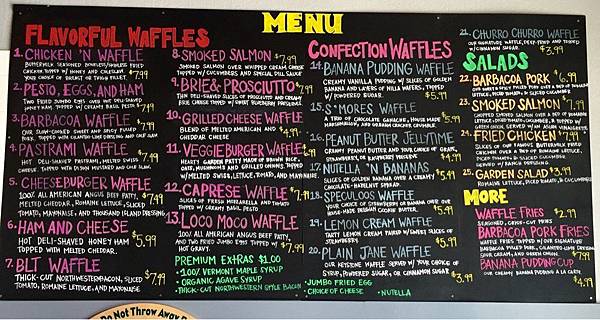 MENU
FLAVORFUL WAFFLES
1. CHICKEN 'N WAFFLE
BUTTERMILK SEASONED BONELESS/SKINLESS FRIED
CHICKEN TOPPED W/ HONEY AND CHOLULA!
YOUR CHOICE OF BREAST OR THIGH FILLET. $7.99
2. PESTO, EGGS, AND HAM
TWO FRIED JUMBO EGGS OVER WE DELI-SHAVED
HONEY HAM, TOPPED W/ CREAMY BASIL PESTO $7.99
3. BARBACOA WAFFLE
OUR SLOW-COOKED SWEET AND SPICY PULLED
PORK. TOPPED WITH CILANTRO-LIME DRESSING AND COLE SLAW. $7.99
4. PASTRAMI WAFFLE
HOT DELI-SHAVED PASTRAMI, MELTED SWISS
CHEESE. TOPPED WITH DIJON MUSTARD AND COLE SLAW. $7.99
5. CHEESEBURGER WAFFLE
100% ALL AMERICAN ANGUS BEEF PATTY, $7.99
MELTED CHEDDAR, ROMAINE LETTUCE, SLICED
TOMATO, MAYONNAISE, AND THOUSAND ISLAND DRESSING
6. HAM AND CHEESE
HOT DELI-SHAVED HONEY HAM $5.99
TOPPED WITH MELTED CHEDDAR.
7. BLT WAFFLE
THICK-CUT NORTHWESTERN BACON, SLICED
TOMATO, ROMAINE LETTUCE, AND MAYONNAISE $7.99
8. SMOKED SALMON $7.99
SMOKED SALMON OVER WHIPPED CREAM CHEESE
TOPPED W/ CUCUMBERS AND SPECIAL DILL SAUCE
9. BRIE & PROSCIUTTO $7.99
THIN DELI-SHAVED SLICES OF PROSCIUTTO AND CREAMY
BRIE CHEESE TOPPED W/ SWEET BLUEBERRY PRESERVES.
10. GRILLED CHEESE WAFFLE
BLEND OF MELTED AMERICAN AND
CHEDDAR CHEESE $4.99
11. VEGGIEBURGER WAFFLE
HEARTY GARDEN PATTY MADE OF BROWN RICE,
OATS, MUSHROOMS AND GRILLED ONIONS. TOPPED
W/ MELTED SWISS, LETTUCE, TOMATO, AND MAYONNAISE
12. CAPRESE WAFFLE $7.99
SLICES OF FRESH MOZZARELLA AND TOMATO
TOPPED W/ CREAMY BASIL PESTO
13. LOCO MOCO WAFFLE
100% ALL AMERICAN ANGUS BEEF PATTY,
AND TWO FRIED JUMBO EGGS TOPPED W/
HOT GRAVY. $7.99
PREMIUM EXTRAS $1.00
·100% VERMONT MAPLE SYRUP
·ORGANIC AGAVE SYRUP
·THICK-CUT NORTHWESTERN STYLE BACON
CONFECTION WAFFLES
14. BANANA PUDDING WAFFLE
CREAMY VANILLA PUDDING W/ SLICES OF GOLDEN
BANANA AND LAYERS OF NILLA WAFERS, TOPPED
W/ POWDERED SUGAR. $5.99
15. S'MORES WAFFLE
A TRIO OF CHOCOLATE GANACHE, HOUSE MADE
MARSHMALLOW, AND GRAHAM CRACKER CRUMBLE
16. PEANUT BUTTER JELLYTIME
CREAMY PEANUT BUTTER AND YOUR CHOICE OF GRAPE,
STRAWBERRY, OR RASPBERRY PRESERVE $4.99
17. NUTELLA 'N BANANAS
SLICES OF GOLDEN BANANA OVER A CREAMY
CHOCOLATE-HAZELNUT SPREAD. $5.99
18. SPECULOOS WAFFLE
YOUR CHOICE OF STRAWBERRY OR BANANA OVER OUR
HOUSE-MADE BELGIAN COOKIE BUTTER. $5.99
19. LEMON CREAM WAFFLE
TART LEMON CREAM PAIRED W/ SWEET SLICES OF
STRAWBERRIES $5.99
20. PLAIN JANE WAFFLE
OUR KETTERIE WAFFLE SERVED W/ YOUR CHOICE OF
SYRUP, POWDERED SUGAR, OR CINNAMON SUGAR $3.99
·JUMBO FRIED EGG
·CHOICE OF CHEESE ·NUTELLA
21. CHURRO CHURRO WAFFLE
OUR SIGNATURE WAFFLE, DEEP-FRIED AND TOSSED
W/ CINNAMON SUGAR. $3.99
SALADS
22. BARBACOA PORK $6.99
LETTUCE, TOMATO & SLICED CUCUMBERS
23. SMOKED SALMON $7.99
CHOPPED SMOKED SALMON OVER A BED OF
ROMAINE LETTUCE, SLICED TOMATO, & TOPPED W/
24. FRIED CHICKEN $7.99
SLICES OF OUR FAMOUS BUTTERMILK FRIED
CHICKEN OVER A BED OF ROMAINE LETTUCE,
TOMATO & SLICED CUCUMBER
SERVED W/ RANCH DRESSING
25. GARDEN SALAD $3.99
ROMAINE LETTUCE, DICED TOMATO, & CUCUMBERS
MORE
WAFFLE FRIES $2.99
SEASONED, CRISS-CUT FRIES
BARBACOA PORK FRIES
WAFFLE FRIES TOPPED W/ OUR SIGNATURE
BARBACOA PULLED PORK, CILANTRO-LIME DRESSING
SOUR CREAM, AND GREEN ONION $7.99
BANANA PUDDING CUP
OUR CREAMY BANANA PUDDING A LA CARTE $4.99
Do Not Throw Away